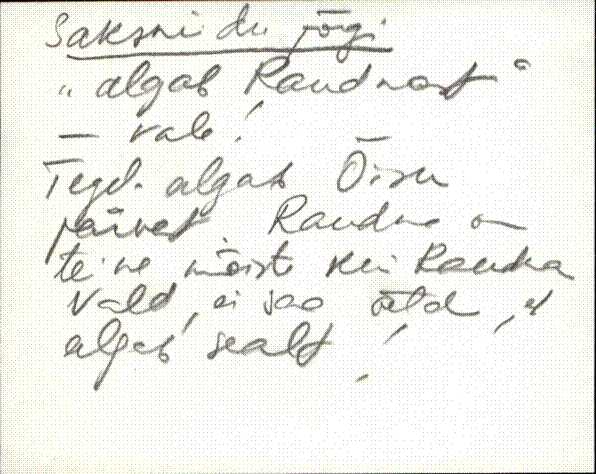 Saksniidu jõgi
"algab Raudnast"
– vale!
Tegel. algab Õisu
järvest. Raudna on
teine mõiste kui Raudna
vald, ei saa öelda, et
algab sealt!